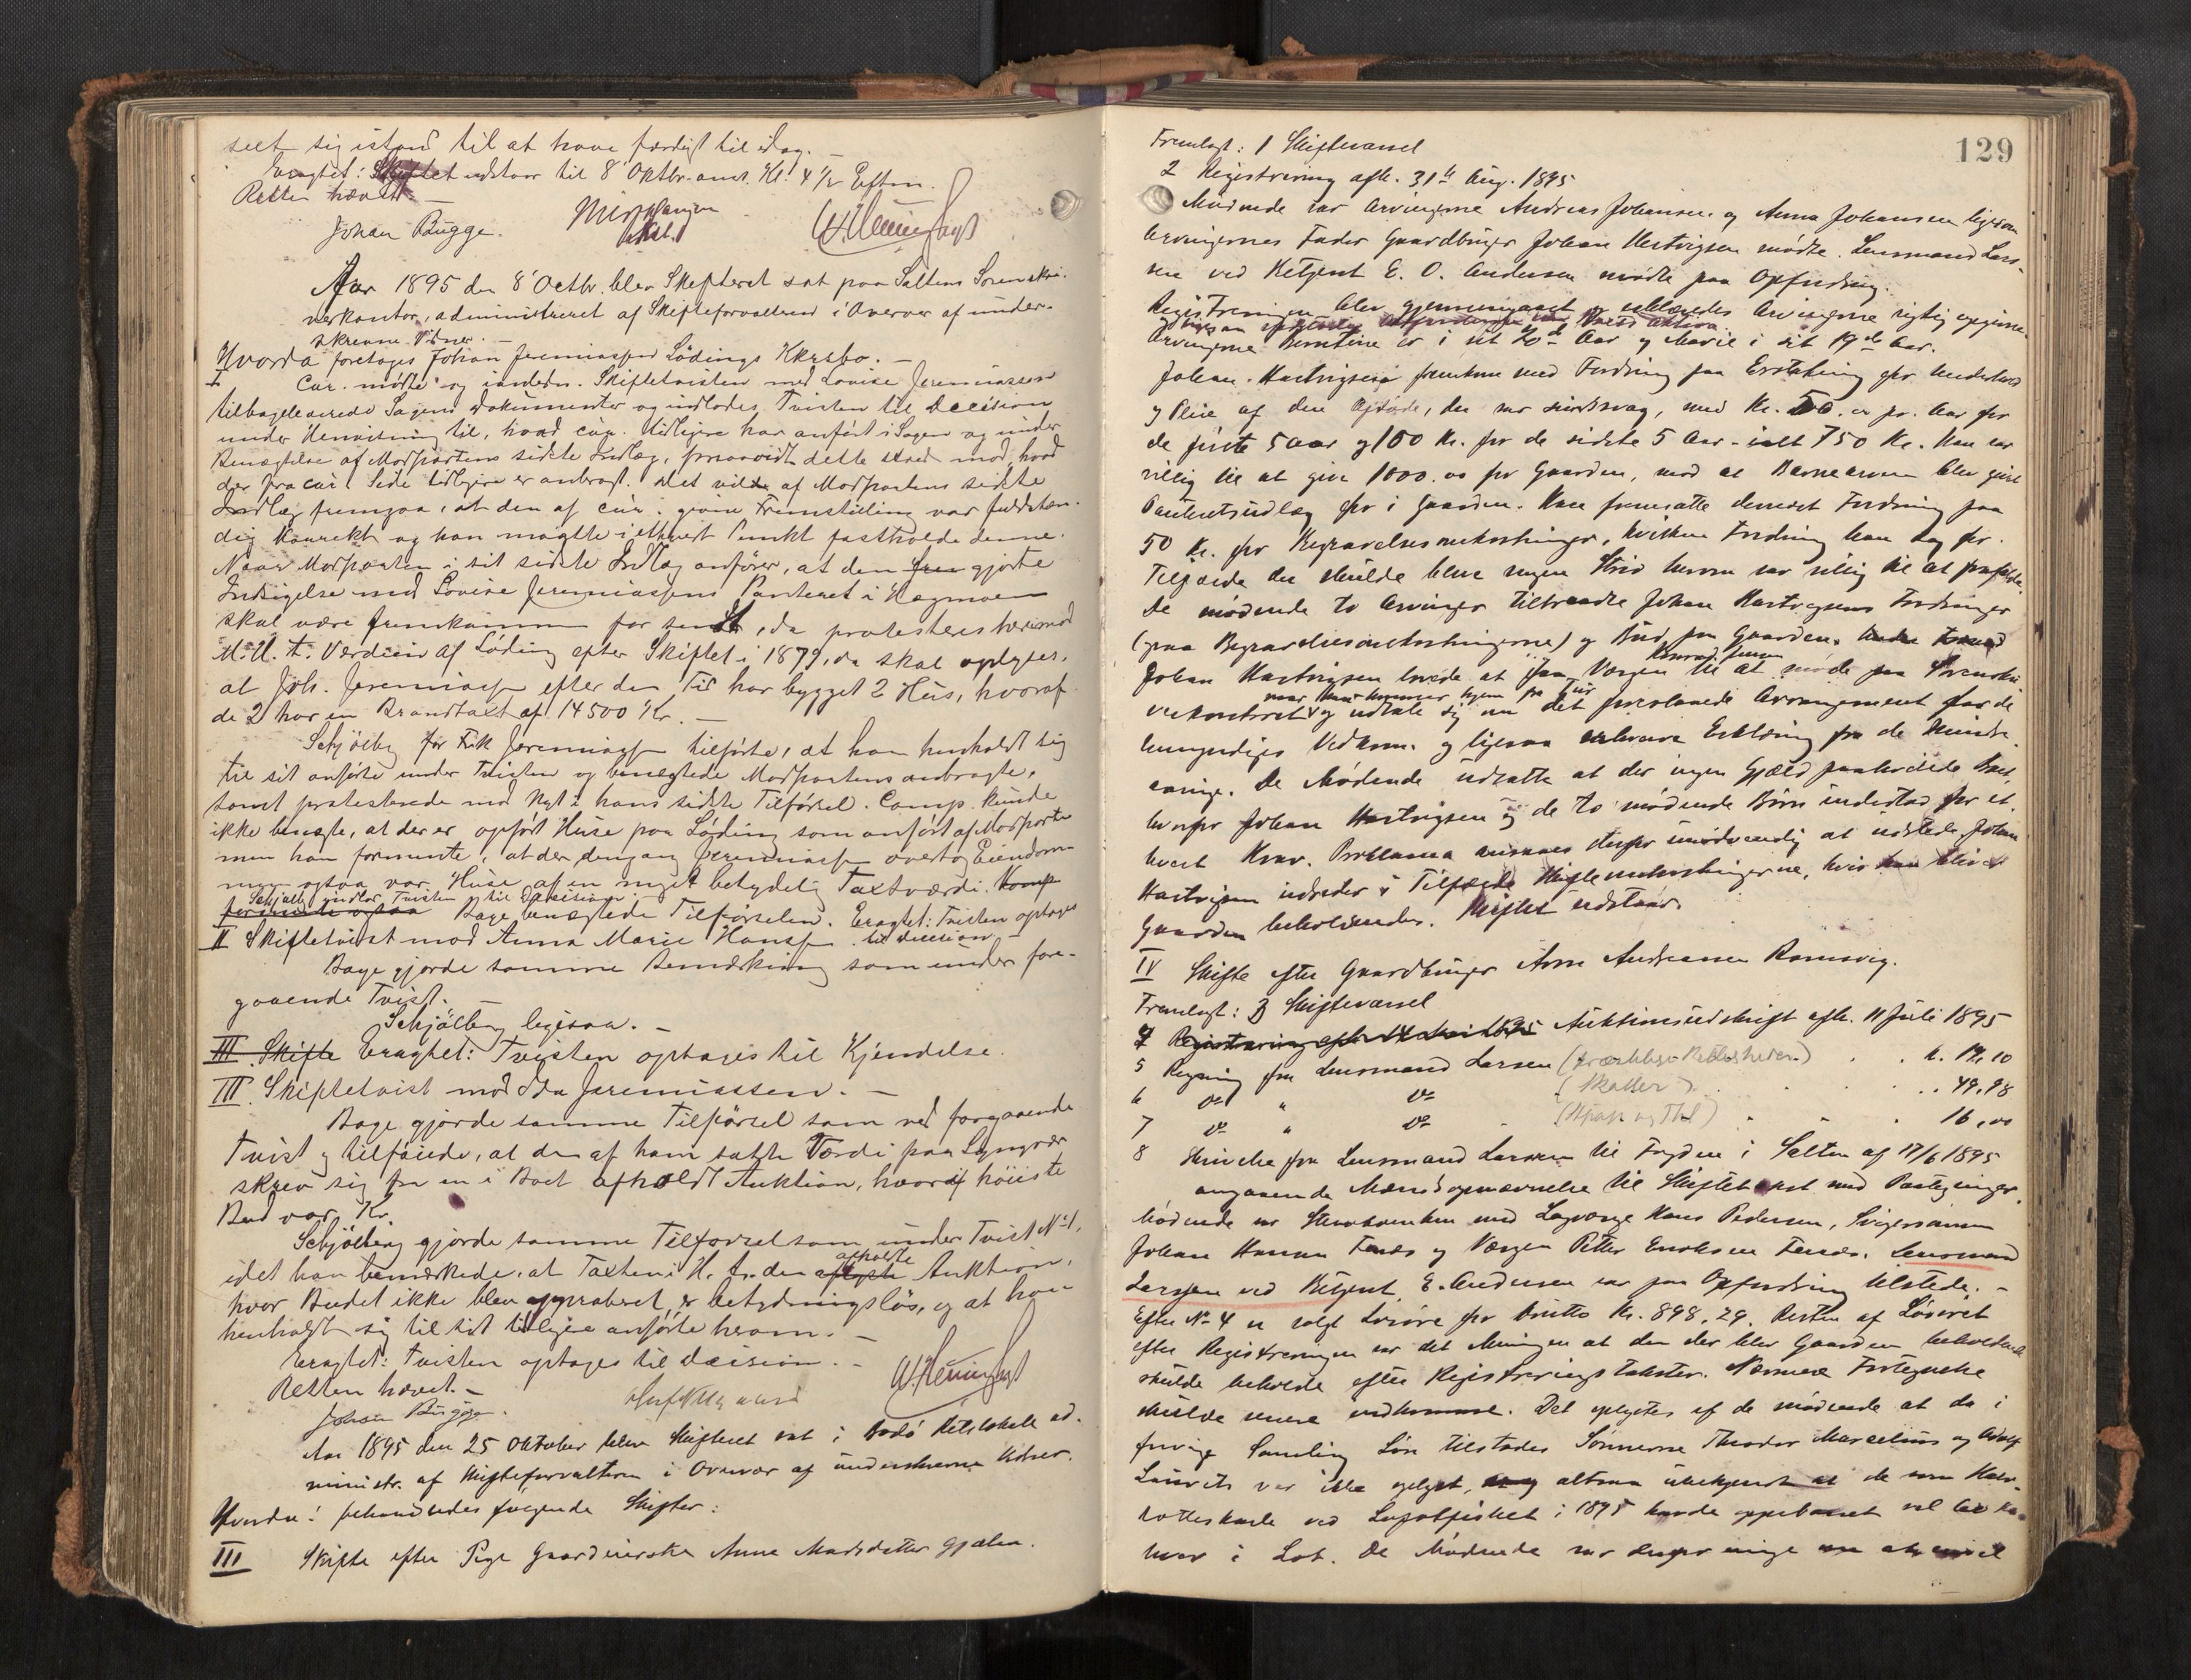 seet sig istand til at have færdigt til idag.
Eragtet: Skiftet udstaar til 8 Oktbr. Kl. 4 1/2 Eftm.
Retten hævet
Johan Bugge.
Aar 1895 den 8 Octbr. blev Skifteret sat paa Saltens Sorenskri-
verkontor, administreret af Skifteforvalteren i Overvær af under-
skrevne Vidner. —
Hvorda foretoges Johan Jeremiassens Lödings Kkrsbo. —
I Cur. mødte og i Skiftetvisten med Lovise Jeremiassen
tilbageleverede Sagens Dokumenter og indlodes Tvisten til Decision
under Henvisning til, hvad cur. tidligere har anført i Sagen og under
Benægtelse af Modpartens sidste Indlæg, forsaavidt dette stred mod, hvad
der fra cur. Side tidligere er anbragt. Det vilde af Modpartens sidste
Indlæg fremgaa, at den af cur. givne Fremstilling var fuldstæn-
dig korrekt og han maatte i ethvert Punkt fastholde denne.
Naar Modparten i sit sidste Indlæg anfører, at den frem gjorte
Indsigelse mod Lovise Jeremiassens Panteret i Hegmoen
skal være fremkommen for sent, da protesteres herimod
M.H.t. Værdien af Löding efter Skiftet i 1879, da skal oplyses,
at Joh. Jeremiassen efter den Tid har bygget 2 Hus, hvoraf
de 2 har en Brandtaxt af 14500 Kr. —
Schjölberg for Frk Jeremiassen tilførte, at han henholdt sig
til sit anførte under Tvisten og benægtede Modpartens anbragte,
samt protesterede mod Nyt i hans sidste Tilførsel. Comp. kunde
ikke benægte, at der er opført Huse paa Löding som anført af Modparten
men han formente, at der dengang Jeremiassen overtog Eiendom-
men ogsaa var Huse af en meget betydelig Taxtværdi. Komp
Schjölb. indlod Tvisten til Decision
formente ogsaa Bage benægtede Tilførselen. Eragtet: Tvisten optages
II Skiftetvist mod Anna Marie Hanssen til decision —
Bage gjorde samme Bemærkning som under fore-
gaaende Tvist. —
Schjölberg ligesaa. —
III Skifte Eragtet: Tvisten optages til Kjendelse.
III. Skiftetvist mod Ida Jeremiassen. —
Bage gjorde samme Tilførsel som ved forgaaende
Tvist og tilføiede, at den af ham satte Værdi paa Lyngvær
skrev sig fra en i Boet afholdt Auktion, hvoraf höieste
Bud var Kr.
Schjölberg gjorde samme Tilførsel som under Tvist No 1,
afholdte
idet han bemærkede, at Taxten i H. t. den aflyste Auktion,
hvor Budet ikke blev approberet, er betydningslös, og at han
henholdt sig til sit tidligere anførte herom. —
Eragtet: Tvisten optages til decision. —
Retten hævet. —
Johan Bugge.
Aar 1895 den 25 Oktober blev Skifteret sat i Bodö Retslokale ad-
ministr. af Skifteforvalteren i Overvær af underskrevne Vidner.
Hvorda: behandledes følgende Skifter:
III Skifte efter Pige Gaardeierske Anne Madsdatter Gjælen.
129
Fremlagt: 1 Skiftevarsel
2 Registrering afh. 31te Aug. 1895
Mødende var Arvingerne Andreas Johansen og Anna Johansen ligesom
Arvingernes Fader Gaardbruger Johan Hartvigsen mødte. Lensmand Lars-
sen ved Betjent E. O. Andersen mødte paa Opfordring.
Registreringen blev gjennemgaaet og erklæredes Arvingerne rigtig opgivne
Arvingerne Berntine er i sit 20de Aar og Marie i sit 19de Aar.
Johan Hartvigsen fremkom med Fordring paa Erstatning for Underhold
og Pleie af den Afdøde, der var sindssvag, med Kr. 50.00 pr. Aar for
de første 5 Aar og 100 Kr. for de sidste 5 Aar - ialt 750 Kr. Han var
villig til at give 1000.00 for Gaarden, mod at Børnearven blev givet
Panteretsudlæg for i Gaarden. Han fremsatte dernæst Fordring paa
50 Kr. for Begravelsesomkostninger, hvilken Fordring han dog for
Tilfælde der skulde blive nogen Strid herom var villig til at frafalde.
De mødende to Arvinger tiltraadte Johan Hartvigsens Fordringer
(paa Begravelsesomkostningerne) og Bud paa Gaarden.
Konrad Jensen
Johan Hartvigsen lovede at faa Værgen til at møde paa Sorenskri-
naar han kommer hjem fra Tur
verkontoret og udtale sig om det foreslaaede Arrangement for de
Umyndiges Vedkom. og ligesaa erhverve Erklæring fra de Mindre-
aarige. De Mødende udsatte at der ingen Gjæld paahvilede Boet,
hvorfor Johan Hartvigsen og de to mødende Børn indestod for et-
hvert Krav. Proklama ansaaes derfor unødvendig at udstede. Johan
Hartvigsen udreder i Tilfælde Skifteomkostningerne, hvis han blir
Gaarden beholdende. Skiftet udstaar.
IV Skifte efter Gaardbruger Arne Andreassen Ramsvig.
Fremlagt: 3 Skiftevarsel
4 Registrering Auktionsudskrift afh. 11 Juli 1895
5 Regning fra Lensmand Larsen (trækkes i Retligheden) . . k. 19.10
6 do " do (Skatter) . . . 49.98
7 do " do . 16,00
8 Skrivelse fra Lensmand Larssen til Fogden i Salten af 17/6 1895
angaaende Mændsopnævnelse til Skiftetakst med Paategninger.
Mødende var Stervboenken med Lagværge Hans Pedersen, Svigersønnen
Johan Hansen Fenes og Værgen Petter Enoksen Fenes. Lensmand
Larssen ved Betjent E. Andersen var paa Opfordring tilstede. —
Efter No 4 er solgt Løsøre for brutto Kr. 898.29. Resten af Løsøret
efter Registreringen var det Meningen at den der blev Gaarden beholdende
skulde beholde efter Registreringstakster. Nærmere Fortegnelse
skulde senere indkomme. Det oplystes af de mødende at da i
forrige Samling Løn tilstodes Sønnerne Theodor Marcelius og Adolf
Laurits var ikke oplyst, altsaa ubekjendt at de som Halv-
lotteskarle ved Lofotfisket i 1895 havde oppebaaret vel
hver i Lot. De Mødende var derfor enige